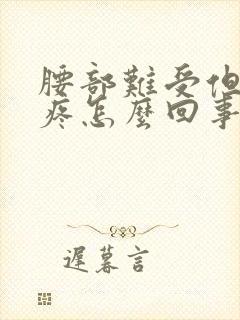 腰部難受但
疼怎麼回事
遲暮言